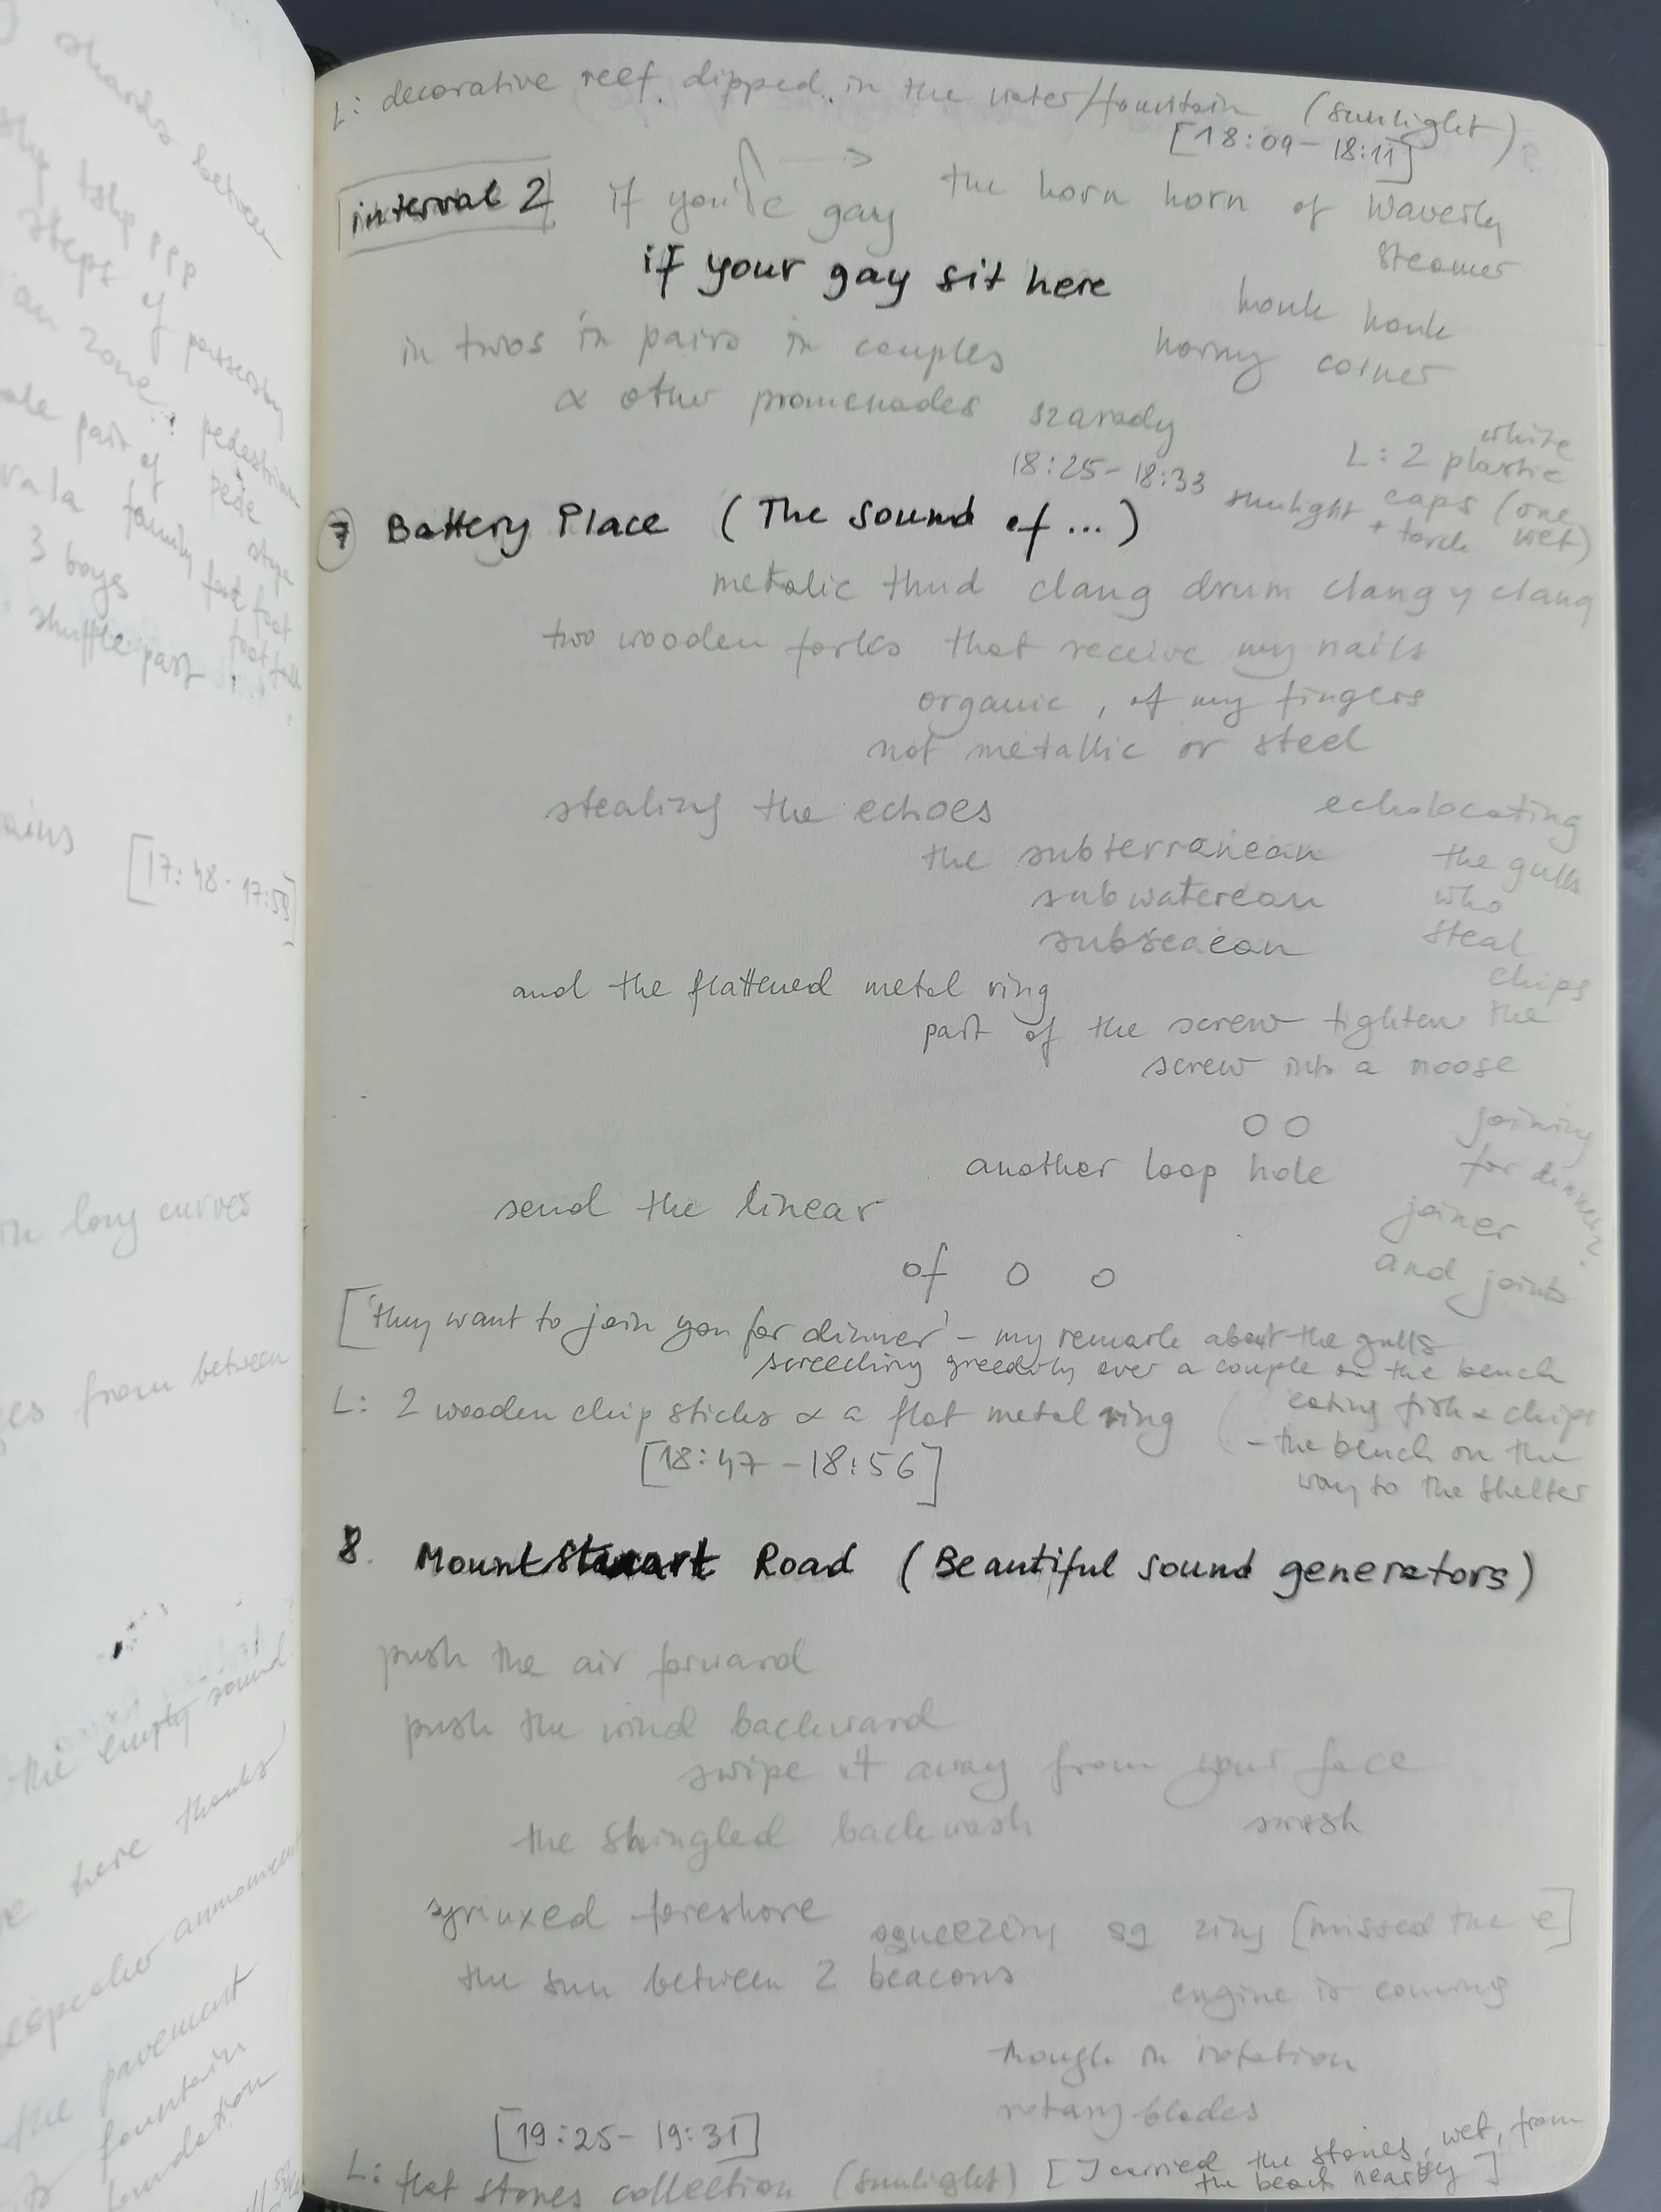 shards between
steps of passersby
an zone pedestrian
3 boys
shuffle past
[17:48-17:59]
long curves
from between
the empty sound
here thanks
announcement
the pavement
fountain
L: decorative reef dipped in the water/fountain (sunlight)
[18:09-18:11]
interval 2
if you're gay
the horn horn of Waverly
steamer
if your gay sit here
honk honk
horny corner
in twos in pairs in couples
& other promenades
szarady
18:25-18:33
L: 2 white plastic
caps (one
wet)
sunlight
+ torch
7 Battery Place (The sound of ...)
metalic thud clang drum clangy clang
two wooden forks that receive my nails
organic, of my fingers
not metallic or steel
stealing the echoes
the subterranean
subwaterean
subseaean
echolocating
the gulls
who
steal
chips
and the flattened metal ring
part of the screw tighten the
screw into a noose
O O
another loop hole
send the linear
of O O
joining
for dinner?
joiner
and joints
['they want to join you for dinner' - my remark about the gulls
screeching greedily over a couple on the bench
eating fish & chips
- the bench on the
way to the shelter
L: 2 wooden chip sticks & a flat metal ring
[18:47-18:56]
8. Mount Stuart Road (Beautiful sound generators)
push the air forward
push the wind backward
swipe it away from your face
the shingled backwash swash
syrinxed foreshore
squeezing sq zing [missed the e]
the sun between 2 beacons
engine is coming
though in rotation
rotary blades
[19:25-19:31]
L: flat stones collection (sunlight) [I carried the stones, wet, from
the beach nearby]